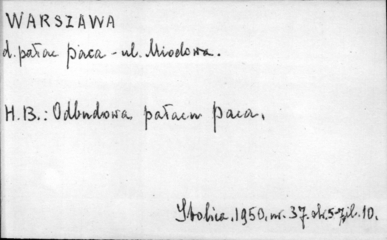 WARSZAWA
d. pałac Paca - ul. Miodowa.
H.B.: Odbudowa pałacu Paca.
Stolica. 1950. nr. 37. str. 5-7, il. 10.